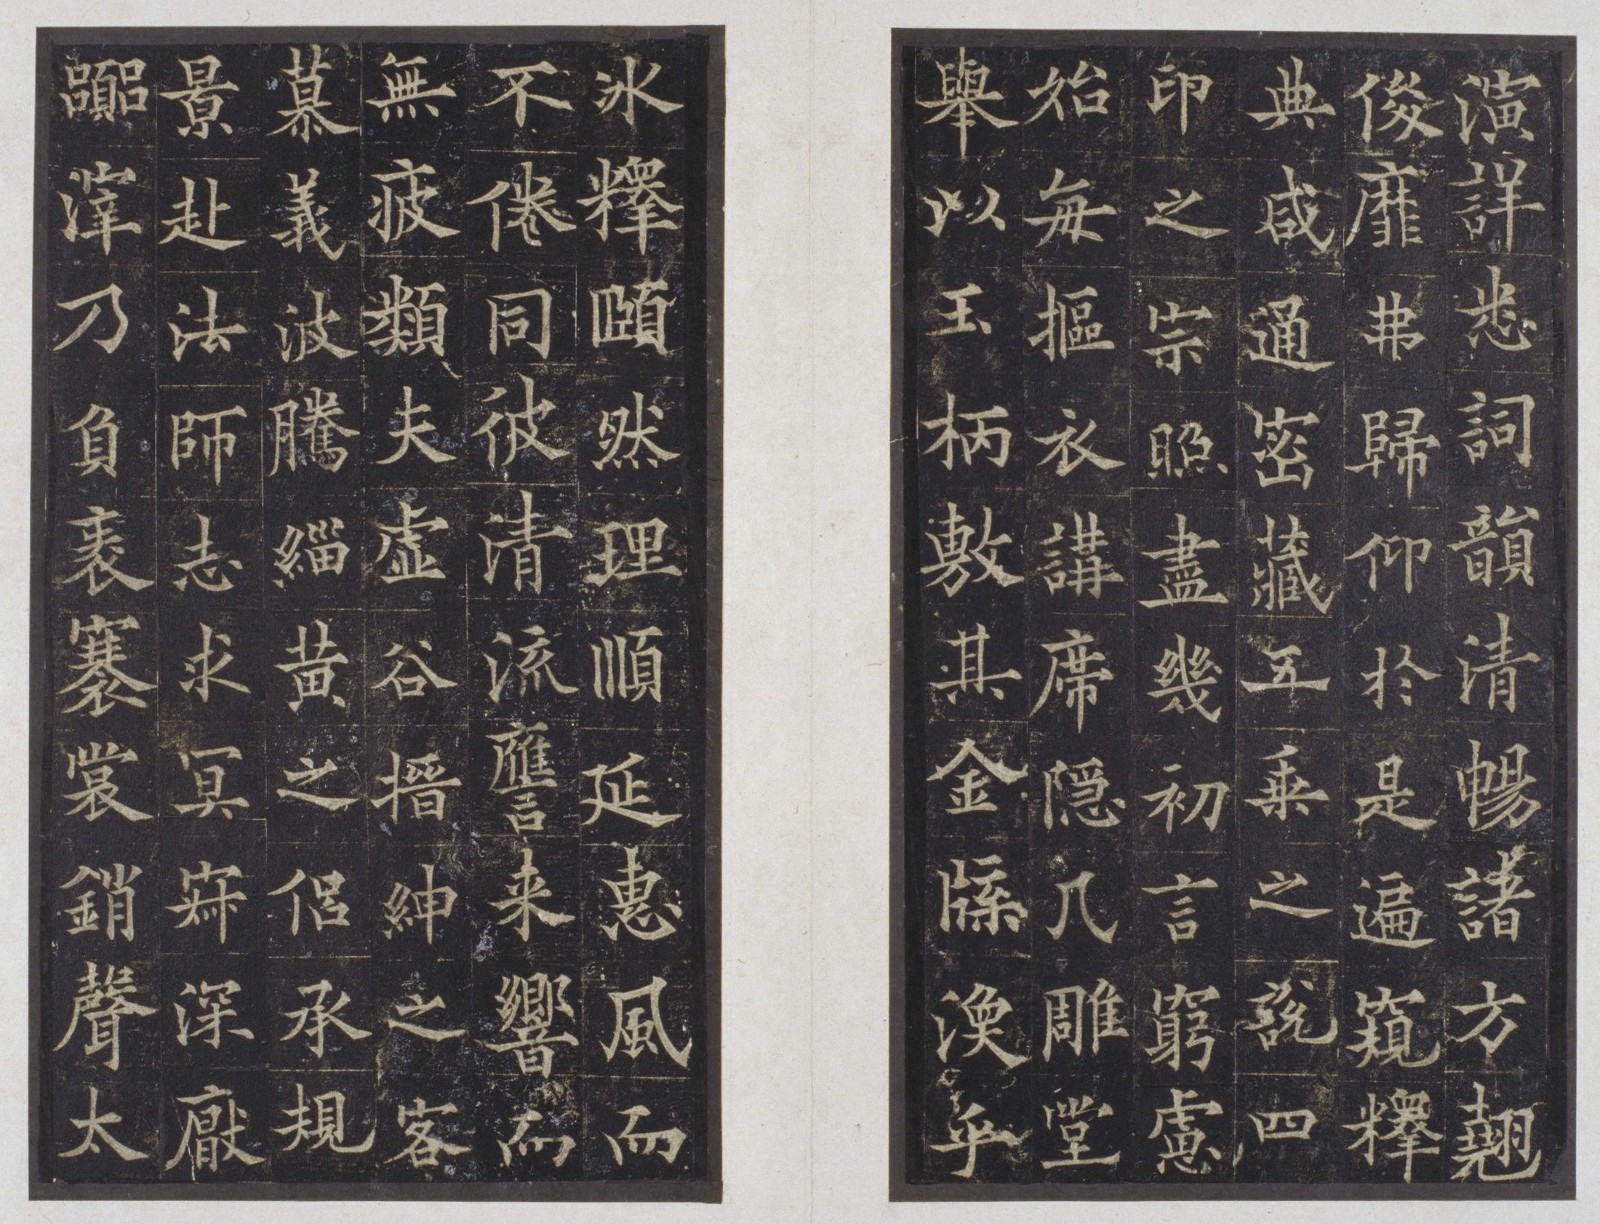 演詳悉詞韻清暢諸方翹
俊靡弗歸仰於是遍窺釋
典咸通密藏五乘之說四
印之宗照盡幾初言窮慮
始每摳衣講席隱几雕堂
舉以玉柄敷其金牒渙乎
冰釋賾然理順延惠風而
不倦同彼清流應言來響而
無疲類夫虛谷搢紳之客
慕義波騰緇黃之侶承規
景赴法師志求冥寂深厭
囂滓乃負袠褰裳銷聲太